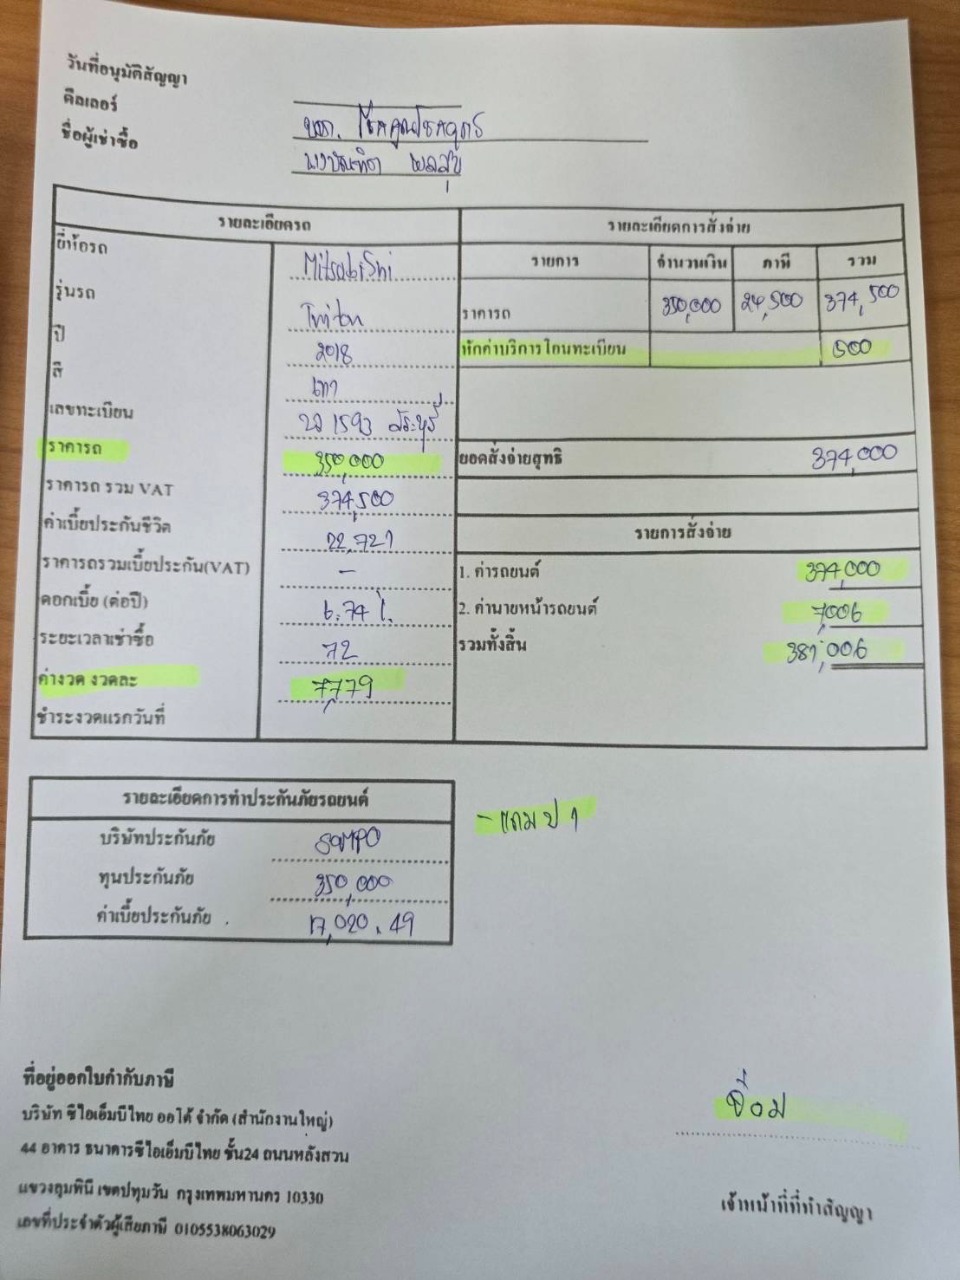 วันที่อนุมัติสัญญา
ดีลเลอร์ บจก. โชคคูณโชคฤทธิ์
ชื่อผู้เช่าซื้อ ผลสุข
รายละเอียดรถ
ยี่ห้อรถ Mitsubishi
รุ่นรถ Triton
ปี 2018
สี เทา
เลขทะเบียน 1593 สระบุรี
ราคารถ 350,000
ราคารถ รวม VAT 374,500
ค่าเบี้ยประกันชีวิต 22,721
ราคารถรวมเบี้ยประกัน(VAT) -
ดอกเบี้ย (ต่อปี) 6.74 %
ระยะเวลาเช่าซื้อ 72
ค่างวด งวดละ 7,779
ชำระงวดแรกวันที่
รายละเอียดการสั่งจ่าย
รายการ จำนวนเงิน ภาษี รวม
ราคารถ 350,000 24,500 374,500
หักค่าบริการโอนทะเบียน 500
ยอดสั่งจ่ายสุทธิ 374,000
รายการสั่งจ่าย
1. ค่ารถยนต์ 374,000
2. ค่านายหน้ารถยนต์ 7,006
รวมทั้งสิ้น 381,006
รายละเอียดการทำประกันภัยรถยนต์
บริษัทประกันภัย SOMPO
ทุนประกันภัย 350,000
ค่าเบี้ยประกันภัย 17,020.49
- แถม ป 1
ที่อยู่ออกใบกำกับภาษี
บริษัท ซีไอเอ็มบีไทย ออโต้ จำกัด (สำนักงานใหญ่)
44 อาคาร ธนาคารซีไอเอ็มบีไทย ชั้น24 ถนนหลังสวน
แขวงลุมพินี เขตปทุมวัน กรุงเทพมหานคร 10330
เลขที่ประจำตัวผู้เสียภาษี 0105538063029
เจ้าหน้าที่ที่ทำสัญญา